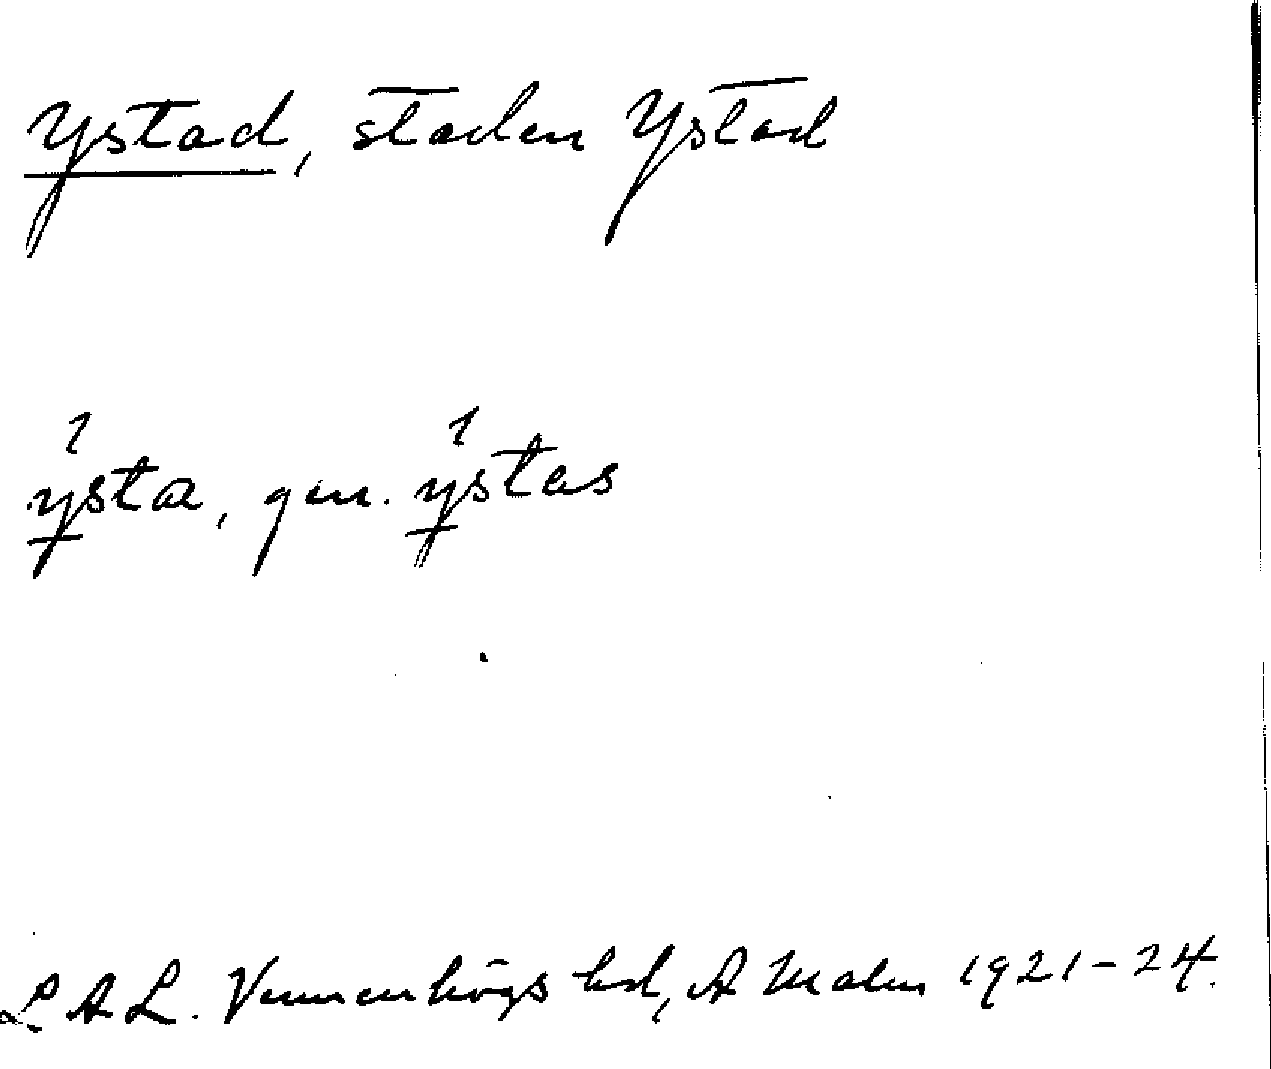 Ystad, staden Ystad
ysta, gen. ystas
L A L. Vemmenhögs hd, A Malm 1921-24.